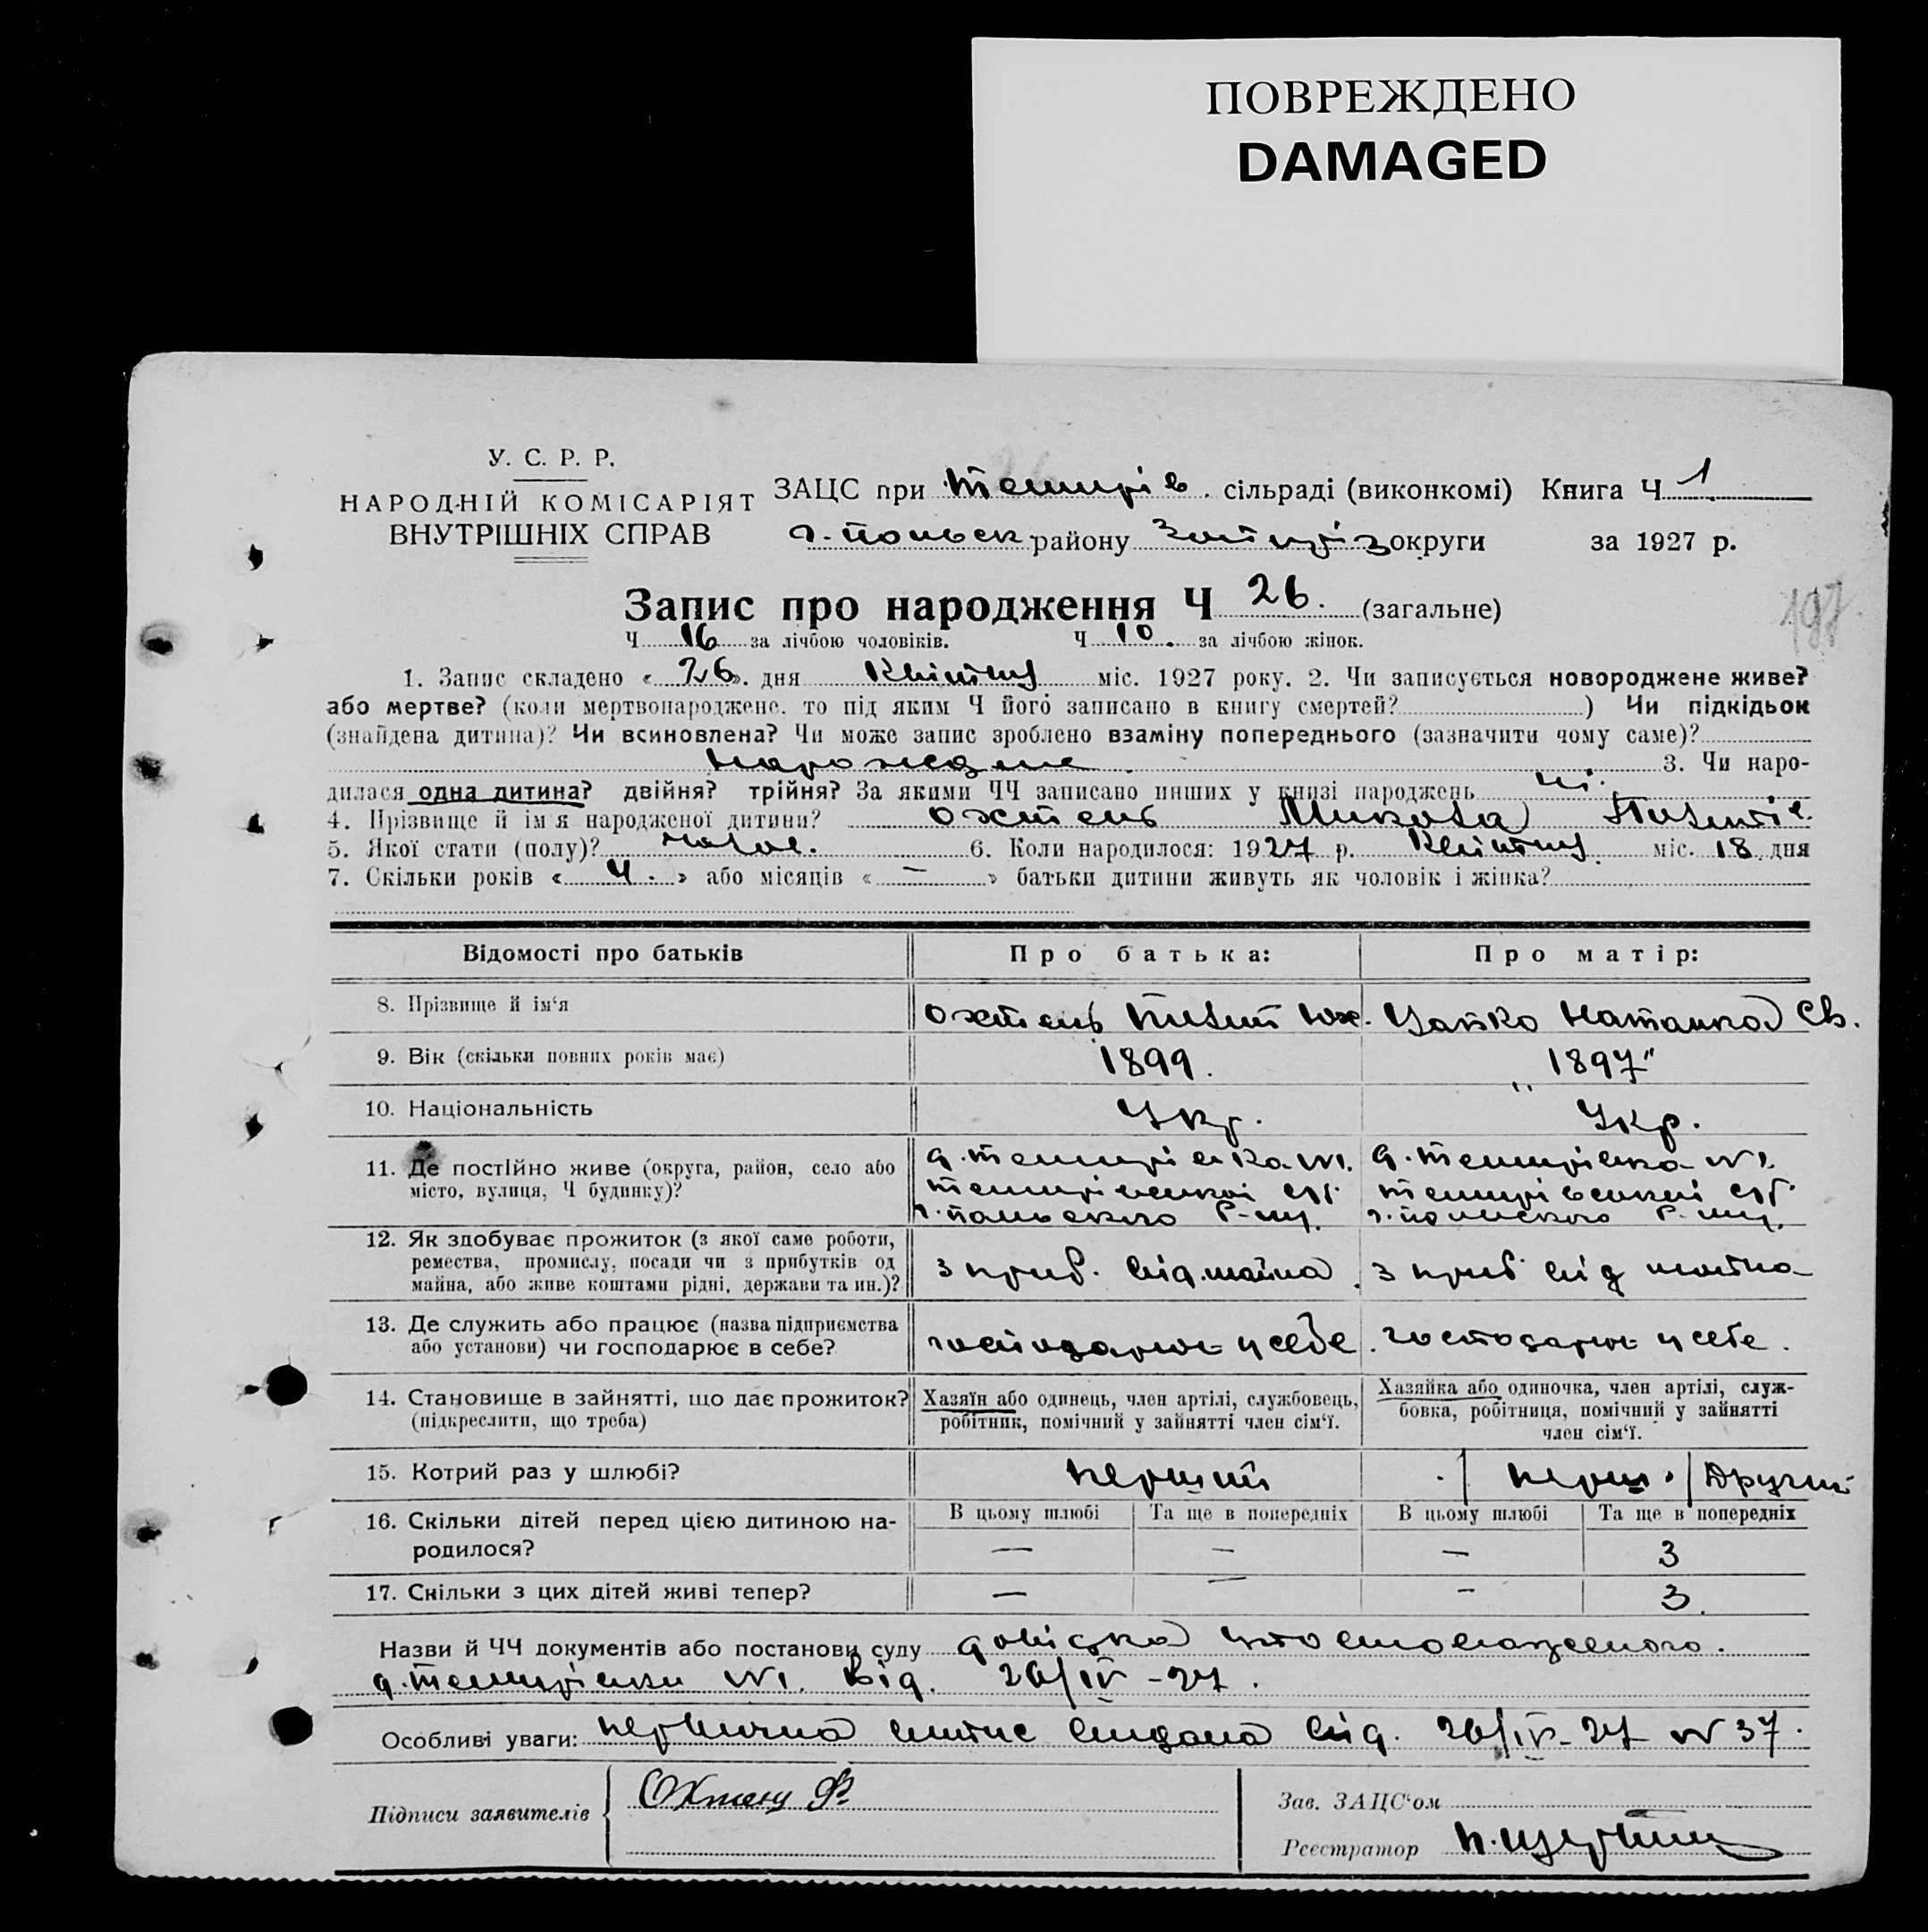 ПОВРЕЖДЕНО
DAMAGED
У. С. Р. Р.
НАРОДНІЙ КОМІСАРІЯТ
ВНУТРІШНІХ СПРАВ
ЗАЦС при сільраді (виконкомі) Книга Ч 1
району округи за 1927 р.
Запис про народження Ч 26. (загальне)
Ч 16 за лічбою чоловіків. Ч 10. за лічбою жінок.
1. Запис складено « 26 ». дня Квітня міс. 1927 року. 2. Чи записується новороджене живе?
або мертве? (коли мертвонароджене, то під яким Ч його записано в книгу смертей? ) Чи підкідьок
(знайдена дитина)? Чи всиновлена? Чи може запис зроблено взаміну попереднього (зазначити чому саме)?
3. Чи наро-
дилася одна дитина? двійня? трійня? За якими ЧЧ записано инших у книзі народжень ні.
4. Прізвище й ім'я народженої дитини? Охтень Микола
5. Якої стати (полу)? 6. Коли народилося: 1927 р. Квітня міс. 18 дня
7. Скільки років « 4. » або місяців « — » батьки дитини живуть як чоловік і жінка?
Відомості про батьків
Про батька:
Про матір:
8. Прізвище й ім'я
Охтень
9. Вік (скільки повних років має)
1899.
1897
10. Національність
Укр.
Укр.
11. Де постійно живе (округа, район, село або
місто, вулиця, Ч будинку)?
12. Як здобуває прожиток (з якої саме роботи,
ремества, промислу, посади чи з прибутків од
майна, або живе коштами рідні, держави та ин.)?
з приб. від. майна
з приб від майна
13. Де служить або працює (назва підприємства
або установи) чи господарює в себе?
господарює у себе.
господарює у себе.
14. Становище в зайнятті, що дає прожиток?
(підкреслити, що треба)
Хазяїн або одинець, член артілі, службовець,
робітник, помічний у зайнятті член сім'ї.
Хазяйка або одиночка, член артілі, служ-
бовка, робітниця, помічний у зайнятті
член сім'ї.
15. Котрий раз у шлюбі?
перший
Другий
16. Скільки дітей перед цією дитиною на-
родилося?
В цьому шлюбі
Та ще в попередніх
В цьому шлюбі
Та ще в попередніх
— — — 3
17. Скільки з цих дітей живі тепер?
— — — 3.
Назви й ЧЧ документів або постанови суду довідка
від. 26/IV-27.
Особливі уваги: первична випис видана від. 26/IV-27 N 37.
Підписи заявителів
Охтень
Зав. ЗАЦС'ом
Реєстратор
197.